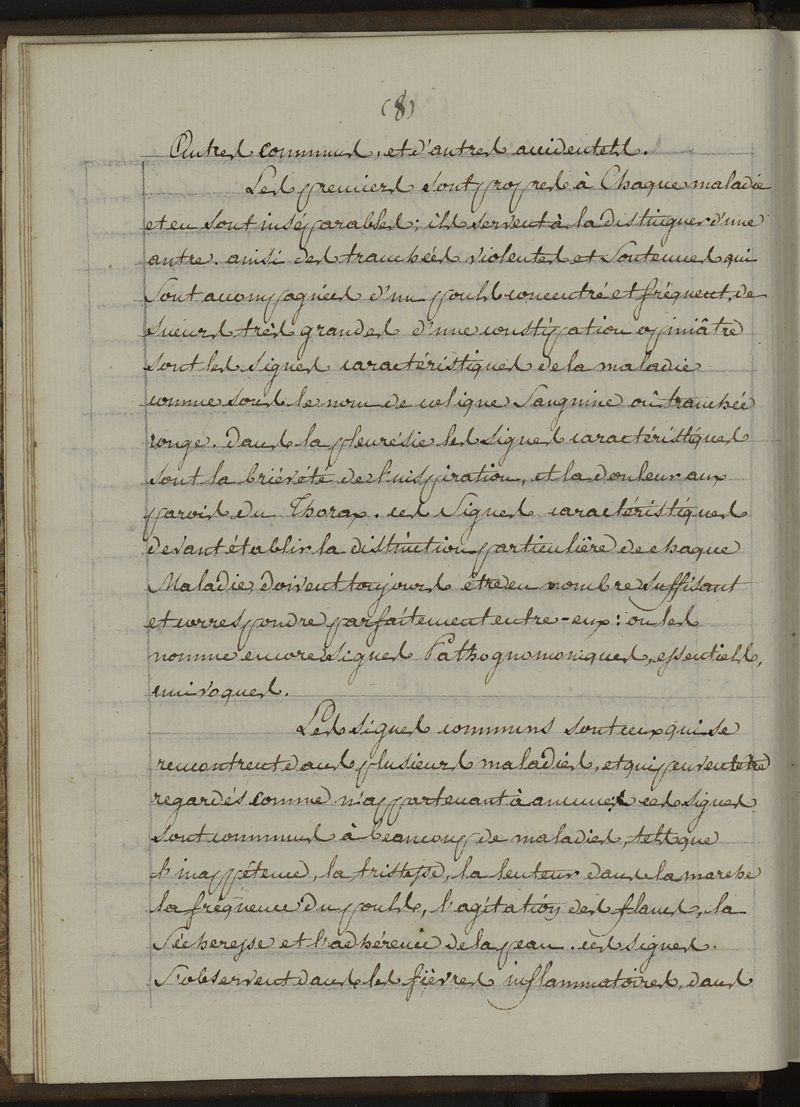 (8)
Autres communs, et d'autres accidentels.
Les premiers sont propres à Chaque maladie
et en sont inséparables; ils servent à la distinguer d'une
autre. ainsi des tranchées violentes et Soutenues qui
Sont accompagnées d'un pouls concentré et fréquent, de
Sueurs très grandes d'une constipation opiniâtre
sont les signes caractéristiques de la maladie
connue sous le nom de colique Sanguine où tranchée
rouge. Dans la pleurésie les signes caractéristiques
sont la briéveté de l'inspiration, et la douleur aux
parois du Thorax. ces Signes caractéristiques
devant établir la distinction particulière de chaque
Maladie, doivent toujours être en nombre suffisant
et correspondre parfaitement entre-eux: on les
nomme encore signes Pathognomoniques, essentiels,
univoques.
Les signes communs sont ceux qui se
rencontrent dans plusieurs maladies, et qui peuvent etre
regardés comme n'appartenant à aucune; ces signes
sont communs à beaucoup de maladies, tels que
l'inappétence, la tristesse, la lenteur dans la marche
la fréquence du pouls, l'agitation des flancs, la
Sécheresse et l'adhérence de la peau. ces signes
S'observent dans les fièvres inflammatoires, dans